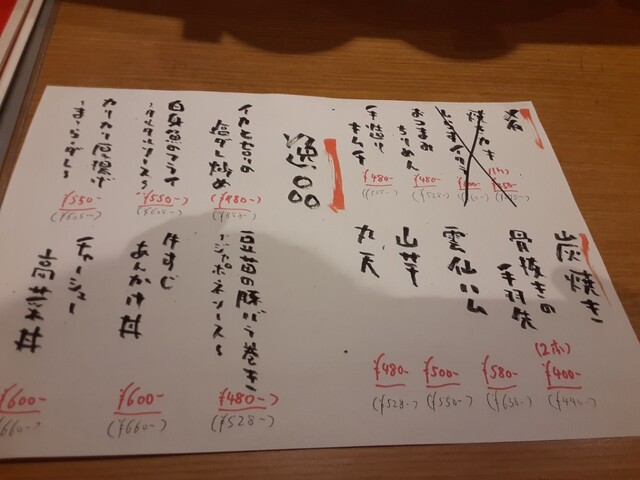 焼きガキ
おつまみ
ちりめん
¥480-
(¥528-)
手造り
キムチ
¥480-
炭焼き
骨抜きの
手羽先
(2本)
¥400-
(¥440-)
雲仙ハム
¥580-
(¥638-)
山芋
¥500-
(¥550-)
丸天
¥480-
(¥528-)
逸品
イカとセロリの
塩ダレ炒め
(¥480-)
豆苗の豚バラ巻き
~ジャポネソース~
¥480-)
(¥528-)
白身魚のフライ
~タルタルソース~
¥550-)
(¥605-)
牛すじ
あんかけ丼
¥600-
(¥660-)
カリカリ厚揚げ
¥550-
(¥605-)
チャーシュー
高菜丼
¥600-
(¥660-)